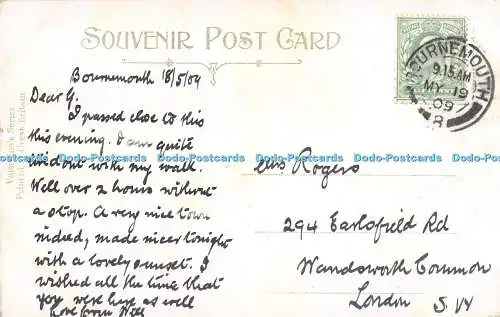 SOUVENIR POST CARD
Bournemouth 18/5/09
Dear G.
I passed close to this
this evening. I am quite
with my walk.
Well over 2 hours without
a stop. A very nice town
indeed, made nicer tonight
with a lovely sunset. I
wished all the time that
you were here as well
Love from Will
Rogers
294 Earlsfield Rd
Wandsworth Common
London S.W
BOURNEMOUTH
9.15 AM
MY 19
09
8
Series
Printed in Great Britain
Dodo-Postcards Dodo-Postcards Dodo-Postcards Dodo-Postcards Dodo-Postcards Dodo-Postcards